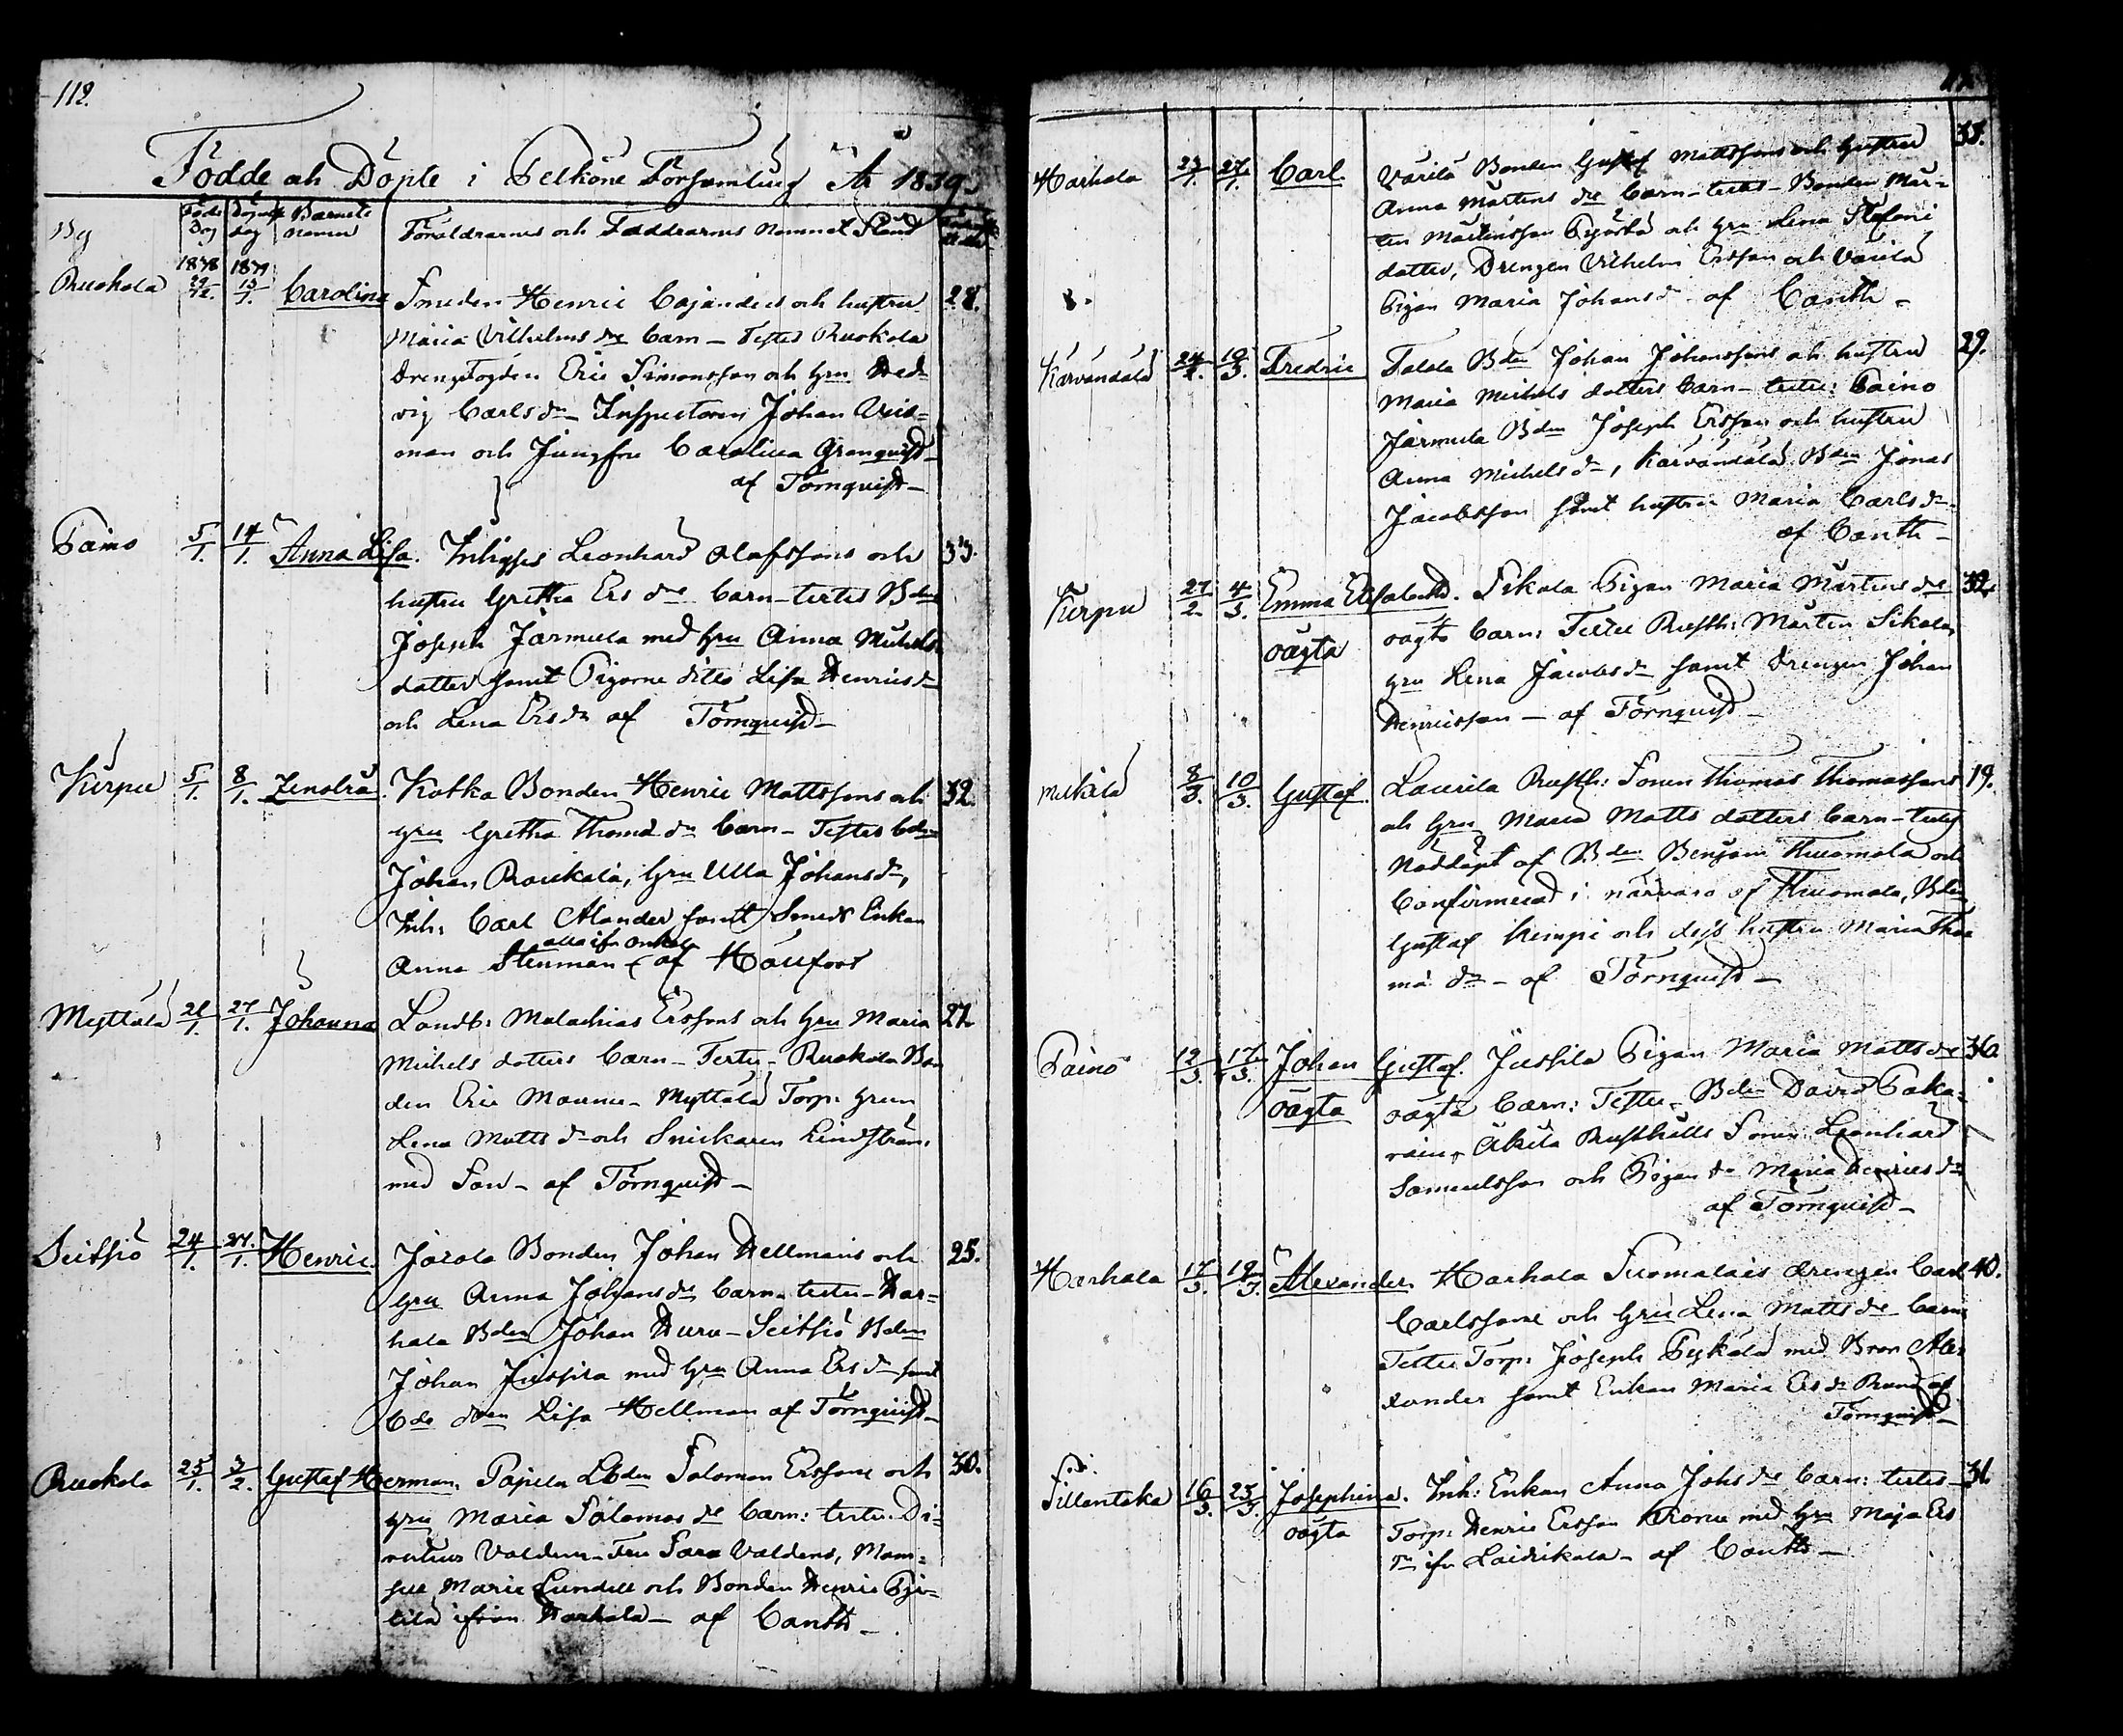 112.
Födde och Döpte i Pelkäne Församling År 1839.
By Föd. Dag Döpn. dag Barnets namn Föräldrarnes och Faddrarnes Namn och Stånd
Ruokola 1838 29/12. 1839 13/1. Carolina Smeden Henric Cajanders och hustru 28.
Maria Vilhelms dr Barn - Testes Ruokola
Drengfogden Eric Simonsson och hru Hed-
vig Carls dr Inspectoren Johan Weid-
man och Jungfru Carolina Granquist
af Törnquist
Paino 5/1. 14/1. Anna Lisa. Inhyses Leonhard Olafssons och 33.
hustru Gretha Ers drs Barn - testes Bden
Joseph Jarmula med hru Anna Michels
dotter samt Pigorne ditto Lisa Henricsdr
och Lena Ersdr af Törnquist
Kirpu 5/1. 8/1. Zenobia. Kotka Bonden Henric Mattssons och 32.
hru Gretha Thomæ dr Barn - Testes
Johan Roukala, hru Ulla Johansdr,
Inh: Carl Alander samt Smeds Enkan
Anna Stenman alla ifr Onkala af Håufors
Myttälä 21/1. 27/1. Johanna Landb: Malachias Erssons och hru Maria 27.
Michels dotters Barn - Testes - Ruokola Bon
den Eric Maunu - Myttälä Torp. hrun
Lena Matts dr och Snickaren Lindström
med Son - af Törnquist
Seitsiö 24/1. 27./1. Henric. Jarola Bonden Johan Hellmans och 25.
hru Anna Johansdrs Barn. testes - Har-
hala Bden Johan Huru - Seitsiö Bden
Johan Jussila med hru Anna Ersdr samt
Lisa Hellman af Törnquist
Ruokola 25/1. 3/2. Gustaf Herman. Papila Lbden Salomon Erssons och 30.
hru Maria Salomos dr Barn: testes. Di-
recteur Valdens - Fru Sara Valdens, Mam-
sell Marie Lundell och Bonden Henric
ifrån Harhala - af Canth -
Harhala 23/1. 27/1. Carl Värilä Bonden Gustaf Mattssons och hustru 35.
Anna Mårtens drs Barn - testes - Bonden Mår-
ten Mårtensson och hru Lena Stefani
dotter, Drengen Vilhelm Ersson och Värilä
Pigan Maria Johansdr - af Canth -
Karvandala 19/3. Fredric Talola Bden Johan Johanssons och hustru 29.
Maria Michels dotters Barn - testes: Paino
Jarmula Bden Joseph Ersson och hustru
Anna Michelsdr, Karvandala Bden Jonas
Jacobsson samt hustru Maria Carlsdr
af Canth -
Kirpu 27/2 4/3. Emma Elisabeth. Sikala Pigan Maria Mårtens drs 32.
oägta oägta Barn: Testes Rusth: Mårten Sikala,
hru Lena Jacobsdr samt Drengen Johan
Henricsson - af Törnquist -
8/3. 10/3. Gustaf. Laurila Rusth: Sonen Thomas Thomassons 19.
och hru Maria Matts dotters Barn -
Nöddöpt af Bden Benjam Thuomola och
Confirmerad i närvaro af Thuomola, Bden
Gustaf Kempi och dess hustru Maria Tho
mæ dr - af Törnquist -
Paino 12/3. 17/3. Johan Gustaf. Jussila Pigan Maria Mattsdrs 36.
oägta oägta Barn: Testes Bden David Paka-
rain, Äkilä Rusthålls Sonen Leonhard
Samuelsson och Pigan Maria Henricsdr
af Törnquist -
Harhala 17/3. 19/3. Alexander. Harhala Suomalais drengen Carl 40.
Carlssons och hru Lena Mattsdrs Barn
Testes Torp: Joseph Pyhälä med Bror Alex
ander samt Enkan Maria Ersdr af
Törnquist -
Sillantaka 16/3. 25/3. Josephina. Inh: Enkan Anna Johsdrs Barn: testes - 31.
oägta Torp: Henric Ersson med hru Maja Ers
dr ifr Laitikkala - af Canth -